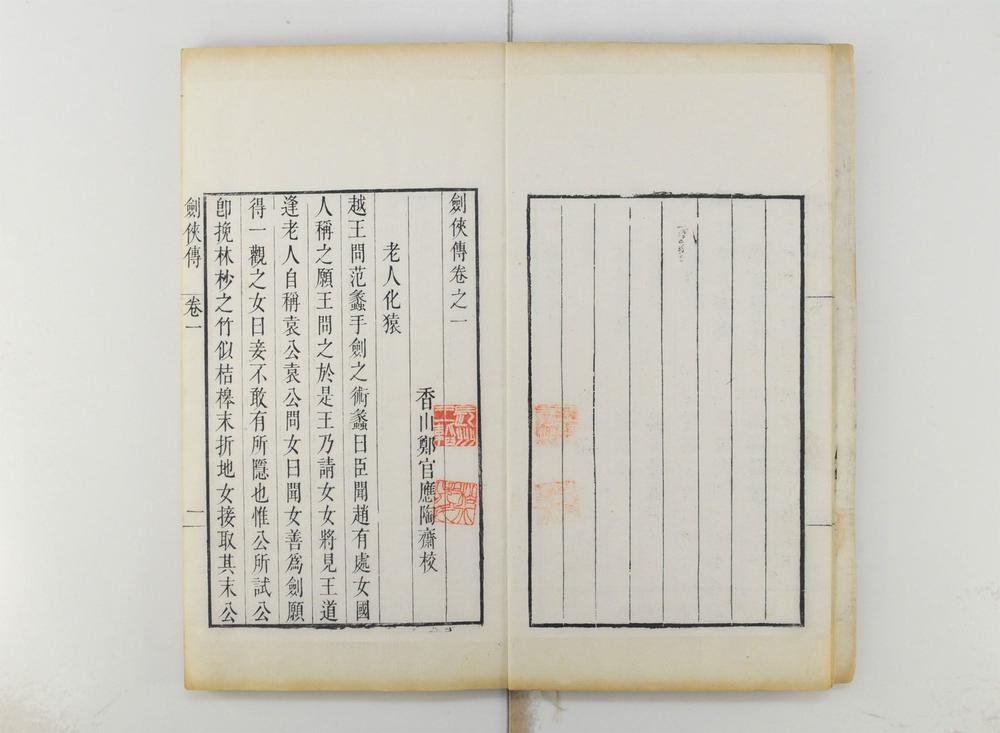 劍俠傳卷之一
香山鄭官應陶齋校
老人化猿
越王問范蠡手劍之術蠡曰臣聞趙有處女國
人稱之願王問之於是王乃請女女將見王道
逢老人自稱袁公袁公問女曰聞女善爲劍願
得一觀之女曰妾不敢有所隱也惟公所試公
卽挽林杪之竹似桔槹末折地女接取其末公
劍俠傳 卷一 一